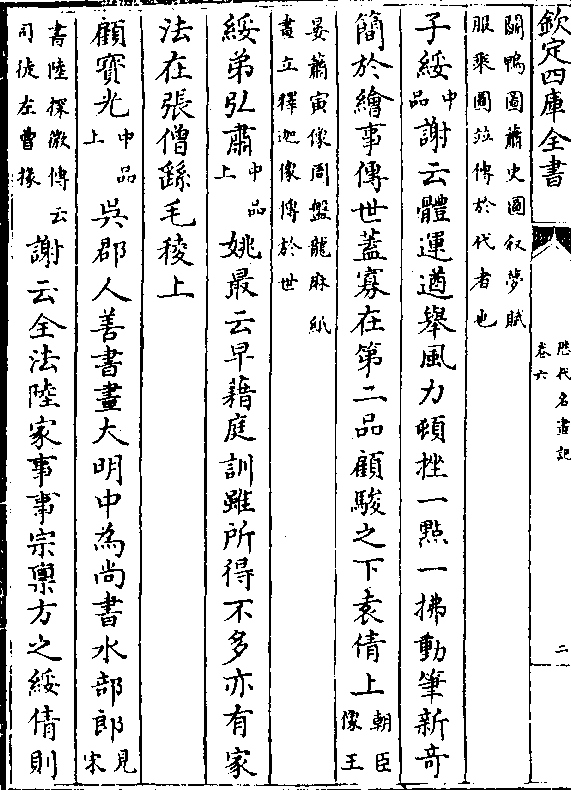 欽定四庫全書
歷代名畫記
卷六
二
鬭鴨圖蕭史圖叙夢賦
服乘圖竝傳於代者也
子綏中品謝云體運遒舉風力頓挫一點一拂動筆新竒
簡於繪事傳世蓋寡在第二品顧駿之下袁倩上朝臣像王
晏蕭寅像周盤龍麻紙
畫立釋迦像傳於世
綏弟弘肅中品上姚最云早藉庭訓雖所得不多亦有家
法在張僧繇毛稜上
顧寶光中品上吳郡人善書畫大明中為尚書水部郎見宋
書陸探微傳云司徒左曹掾謝云全法陸家事事宗稟方之綏倩則